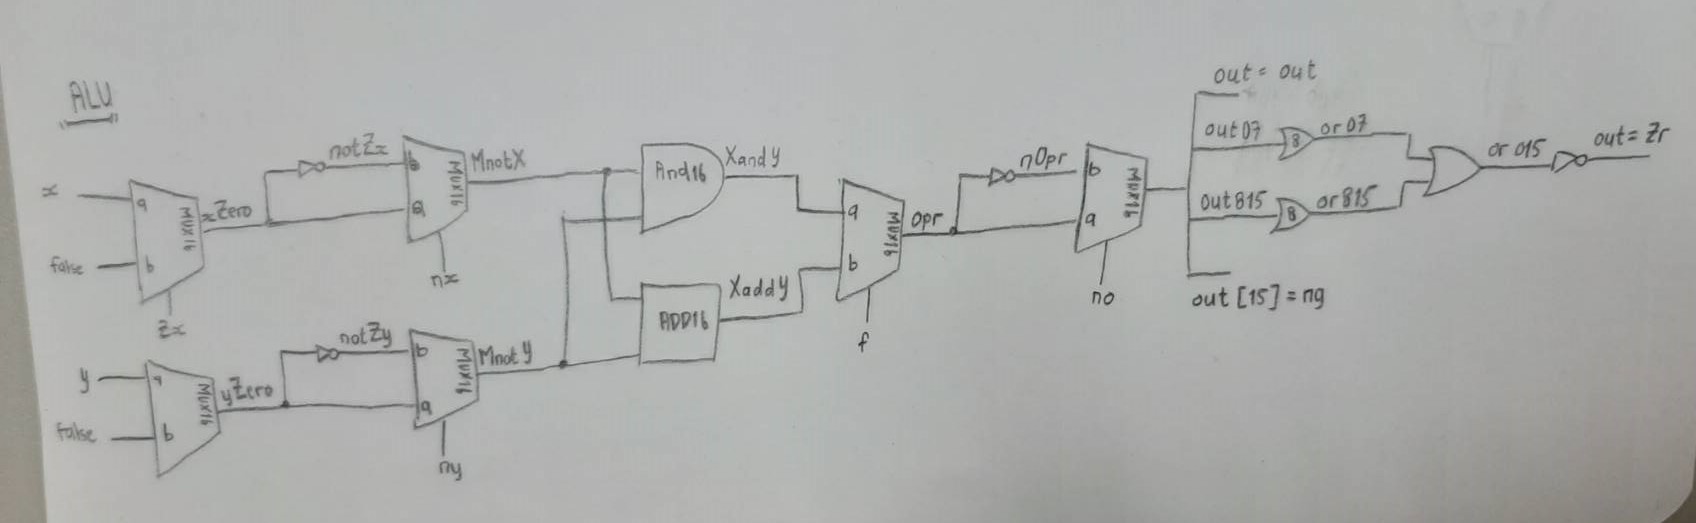 ALU
x
a
b
false
MUX16
zx
xZero
notZx
b
a
MUX16
nx
MnotX
y
false
b
MUX16
yZero
notZy
b
a
MUX16
ny
MnotY
And16
XandY
ADD16
XaddY
a
b
MUX16
f
opr
nOpr
b
a
MUX16
no
out = out
out07
8
or07
out815
8
or815
out [15] = ng
or 015
out = Zr